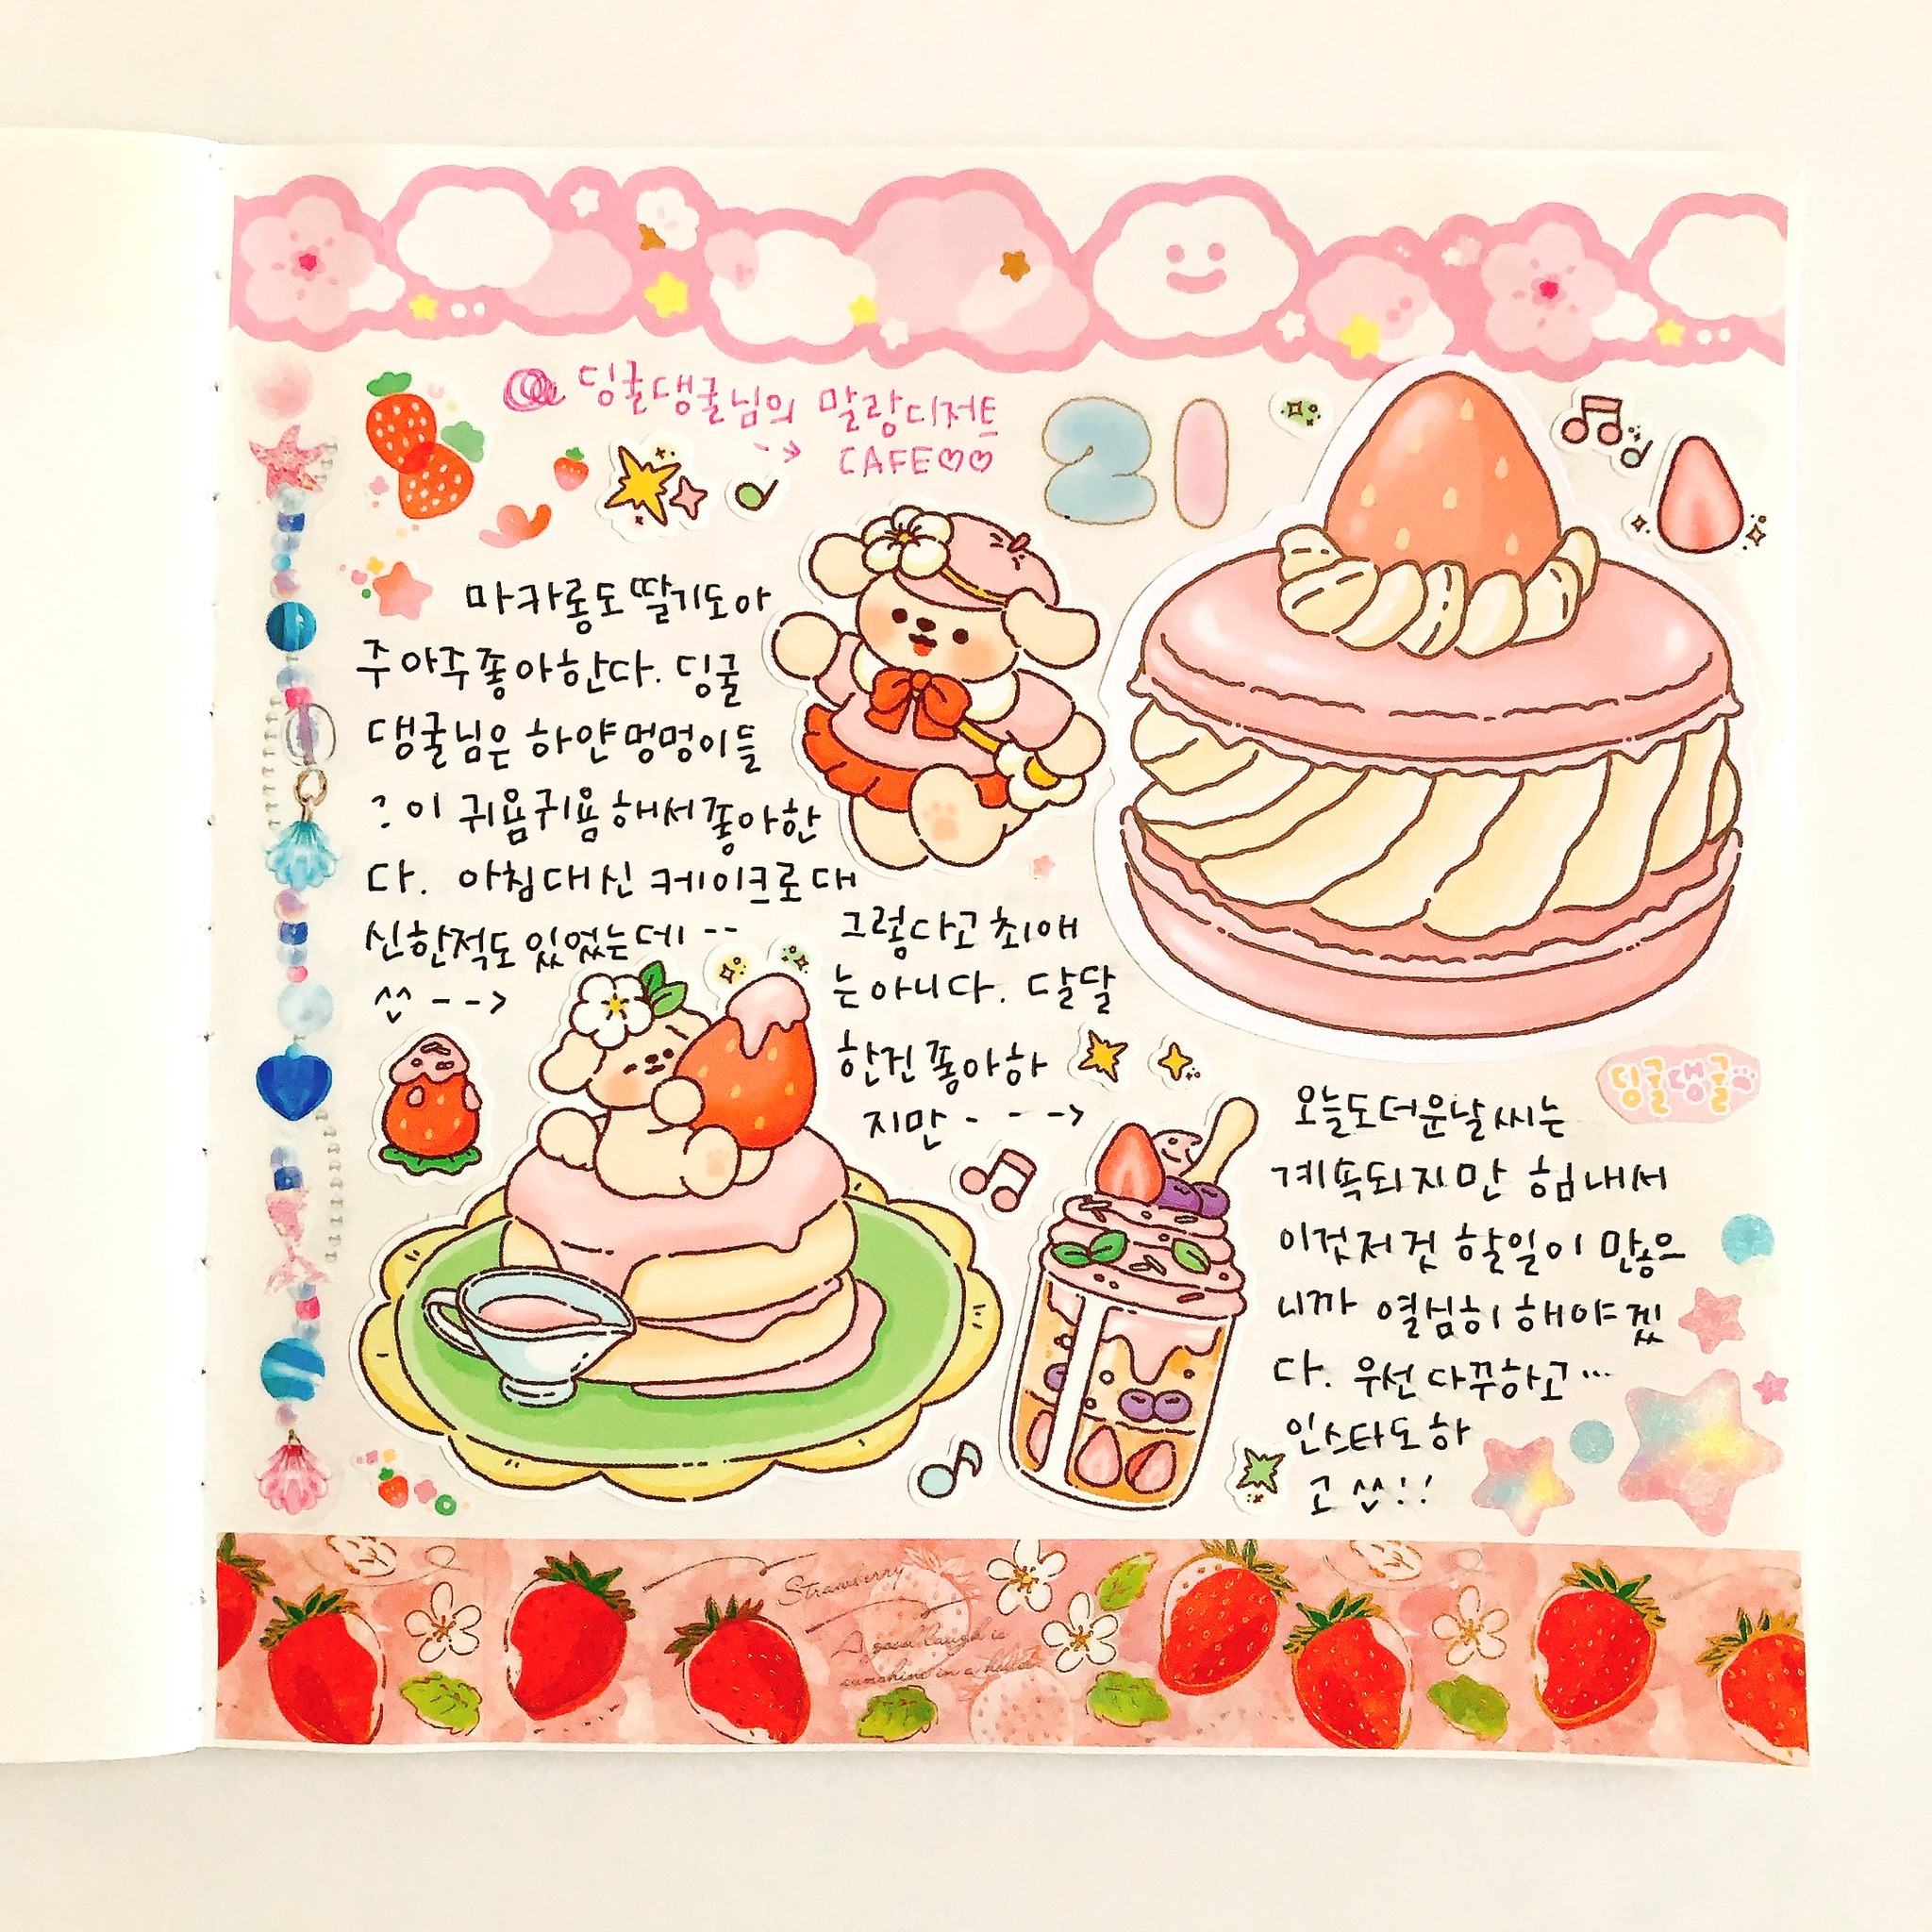 딩굴댕굴님의 말랑디저트
--> CAFE♡♡
21
마카롱도 딸기도 아
주 아주 좋아한다. 딩굴
댕굴님은 하얀멍멍이들
이 귀욤귀욤해서 좋아한
다. 아침대신 케이크로 대
신한적도 있었는데 --
^^ -->
그렇다고 최애
는 아니다. 달달
한건 좋아하
지만 - - ->
딩굴댕굴
오늘도 더운날씨는
계속되지만 힘내서
이것저것 할일이 많으
니까 열심히 해야겠
다. 우선 다꾸하고...
인스타도 하
고 ^^!!
Strawberry
A good laugh is
sunshine in a